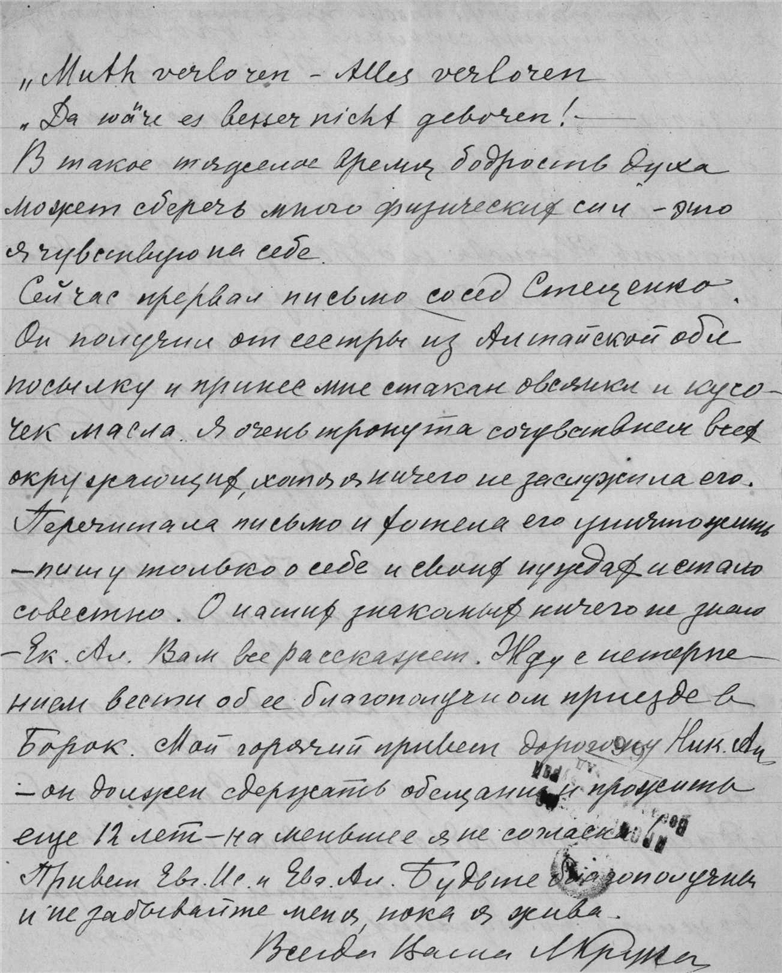 „Muth verloren – Alles verloren
„Da wäre es besser nicht geboren! —
В такое тяжелое время бодрость духа
может сберечь много физических сил – это
я чувствую на себе.
Сейчас прервал письмо сосед Стеценко.
Он получил от сестры из Алтайской обл
посылку и принес мне стакан овсянки и кусо-
чек масла. Я очень тронута сочувствием всех
окружающих, хотя я ничего не заслужила его.
Перечитала письмо и хотела его уничтожить
– пишу только о себе и своих нуждах и стало
совестно. О наших знакомых ничего не знаю
– Ек. Ал. Вам все расскажет. Жду с нетерпе-
нием вести об ее благополучном приезде в
Борок. Мой горячий привет дорогому Ник. Ал.
– он должен сдержать обещание и прожить
еще 12 лет – на меньшее я не согласна.
Привет Евг. Ис. и Евг. Ал. Будьте благополучны
и не забывайте меня, пока я жива.
Всегда Ваша